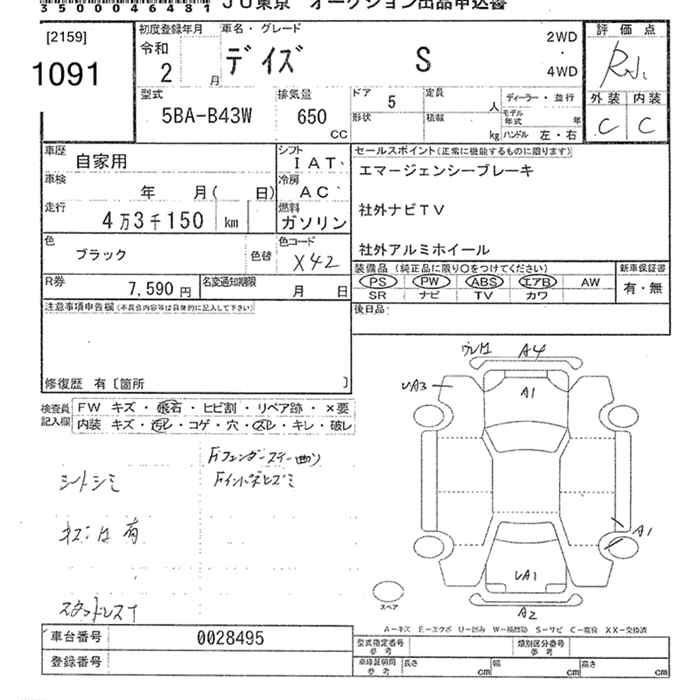 35000046481 JU東京 オークション出品申込書
[2159]
1091
初度登録年月 車名・グレード
令和
2 月
デイズ S
2WD
・
4WD
評価点
型式
5BA-B43W
排気量
650 CC
ドア 5
定員 人
形状
積載 kg
ディーラー・並行
モデル年式 年
ハンドル 左・右
外装 内装
C C
車歴 自家用
シフト IAT
車検 年 月( 日)
冷房 AC
走行 4万3千150 km
燃料 ガソリン
色 ブラック 色替
色コード X42
R券 7,590円
名変通知期限 月 日
セールスポイント(正常に機能するものに限ります)
エマージェンシーブレーキ
社外ナビTV
社外アルミホイール
装備品(純正品に限り○をつけてください)
PS PW ABS エアB AW
SR ナビ TV カワ
新車保証書
有・無
後日品
注意事項申告欄(不具合内容等は具体的に記入して下さい)
修復歴 有〔箇所 〕
検査員記入欄
FW キズ・飛石・ヒビ割・リペア跡・×要
内装 キズ・汚レ・コゲ・穴・スレ・キレ・破レ
シートシミ
キズ凹有
スタッドレス
A4
UA3
A1
A1
UA1
A2
スペア
A-キズ E-エクボ U-凹み W-補修跡 S-サビ C-腐食 XX-交換済
車台番号 0028495
登録番号
型式指定番号 参考
類別区分番号 参考
車庫証明用 参考
長さ cm
幅 cm
高さ cm